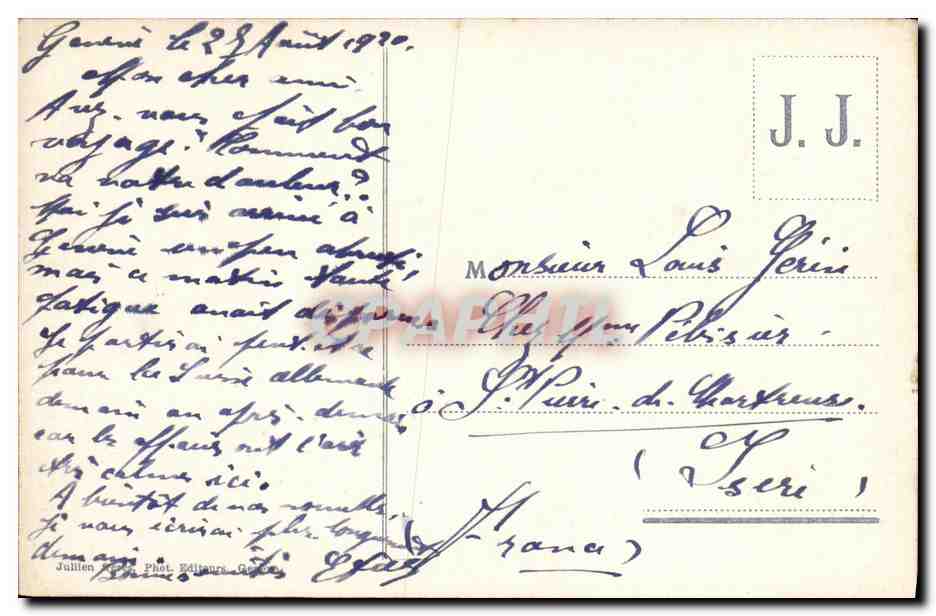 Genève le 25 Août 1920.
Mon cher ami.
Avez-vous fait bon
voyage? Comment
va votre douleur?
Moi je suis arrivé à
Genève un peu abruti,
mais ce matin toute
fatigue avait disparue
Je partirai peut-être
pour la Suisse allemande
demain ou après-demain,
car les affaires ont l'air
très calmes ici.
A bientôt de vos nouvelles,
je vous écrirai plus longuement
demain.
Bonnes amitiés
Jullien Frères, Phot. Editeurs, Genève
J. J.
Monsieur Louis Gérin
Chez Mme Pévisier
à St Pierre-de-Chartreuse.
(Isère)
(France)
CPAPHIL